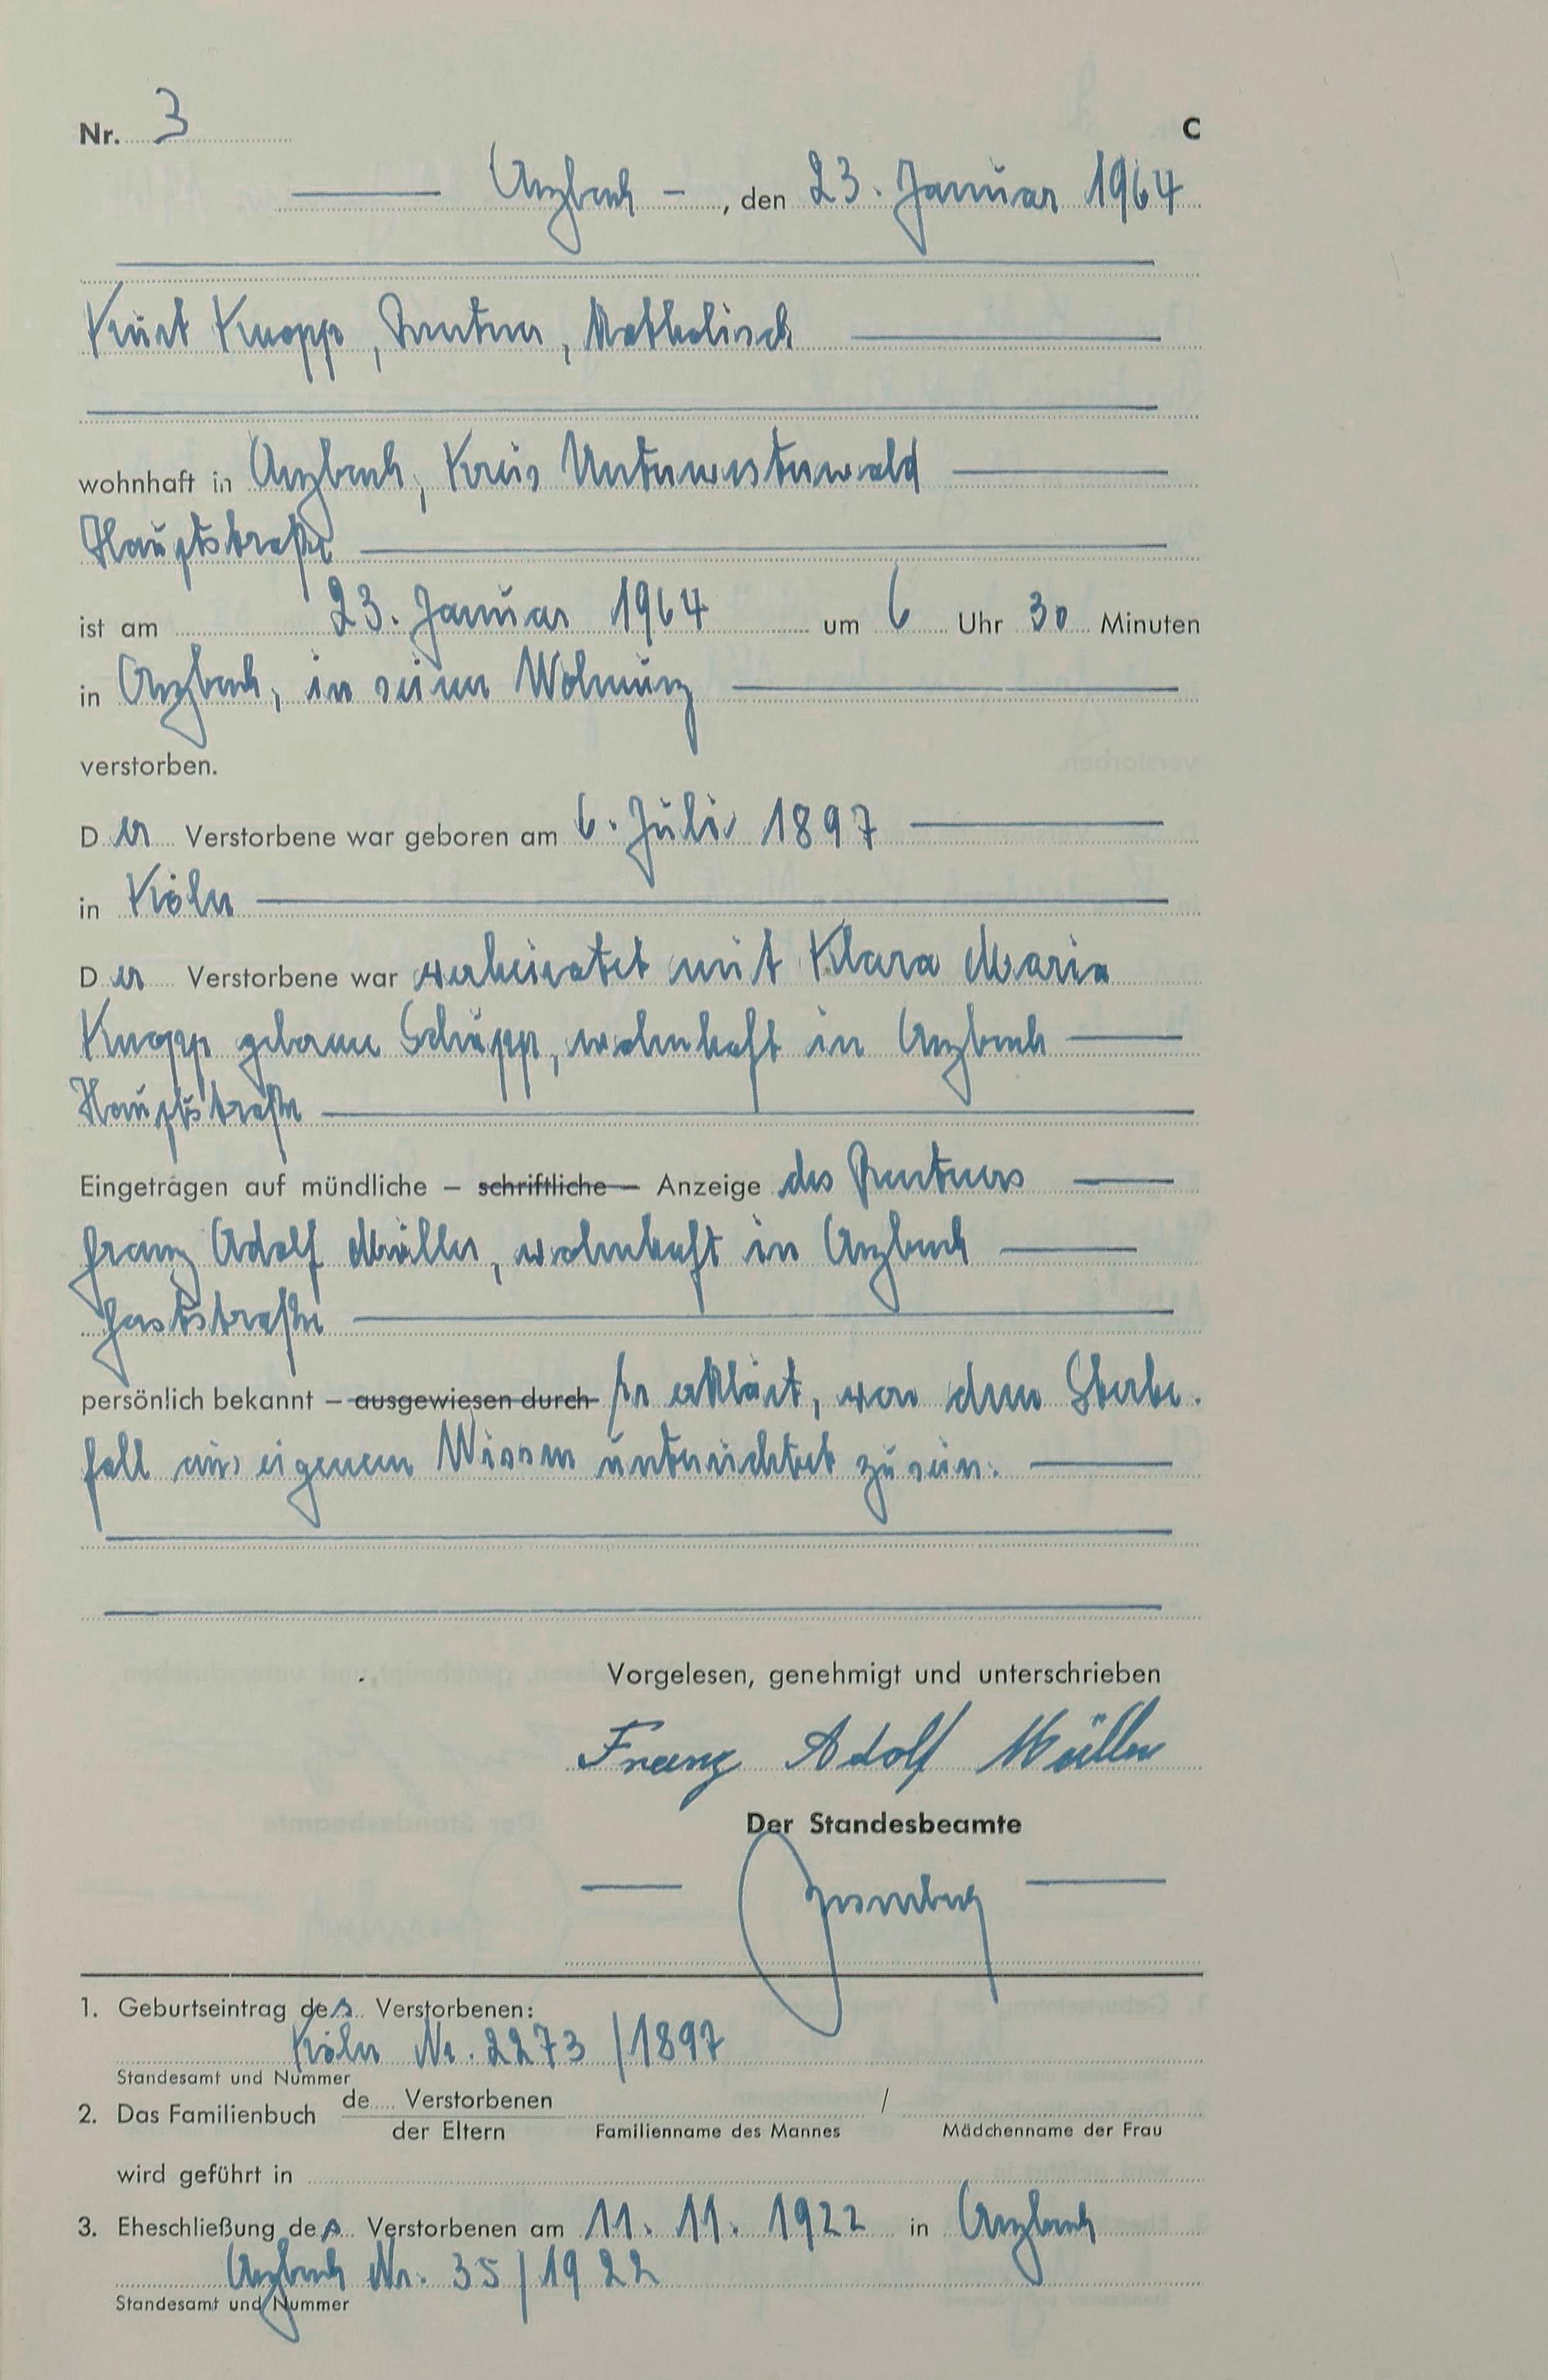 Nr. 3 C
Arzbach –, den 23. Januar 1964
Kurt Knopp, Rentner, katholisch
wohnhaft in Arzbach, Kreis Unterwesterwald
Hauptstraße
ist am 23. Januar 1964 um 6 Uhr 30 Minuten
in Arzbach, in seiner Wohnung
verstorben.
Der Verstorbene war geboren am 6. Juli 1897
in Köln
Der Verstorbene war verheiratet mit Klara Maria
Knopp geborene Schupp, wohnhaft in Arzbach
Hauptstraße
Eingetragen auf mündliche – schriftliche – Anzeige des Rentners
Franz Adolf Müller, wohnhaft in Arzbach
persönlich bekannt – ausgewiesen durch Er erklärt, von dem Sterbe-
fall aus eigenem Wissen unterrichtet zu sein.
Vorgelesen, genehmigt und unterschrieben
Franz Adolf Müller
Der Standesbeamte
1. Geburtseintrag des Verstorbenen:
Köln Nr. 2273/1897
Standesamt und Nummer
2. Das Familienbuch de.... Verstorbenen /
der Eltern Familienname des Mannes Mädchenname der Frau
wird geführt in
3. Eheschließung des Verstorbenen am 11. 11. 1922 in Arzbach
Arzbach Nr. 35/1922
Standesamt und Nummer